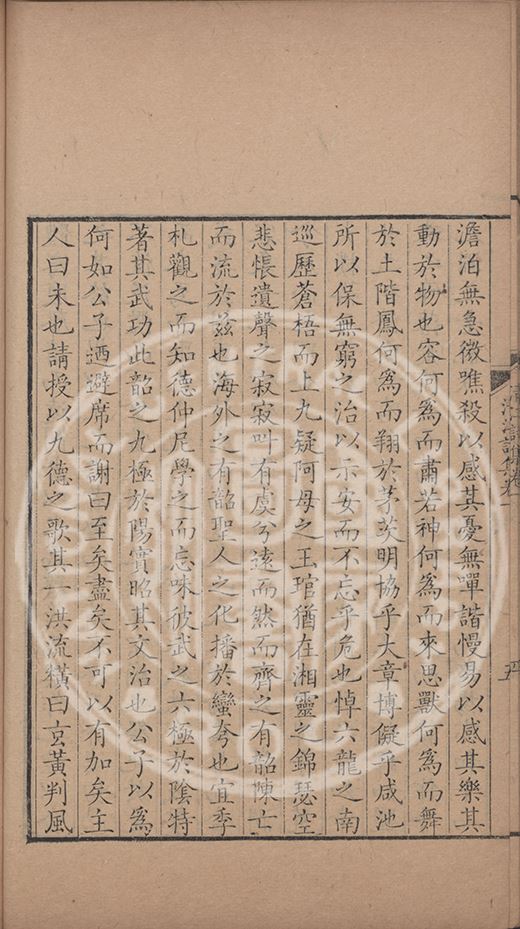 澹泊無急微噍殺以感其憂無嘽諧慢易以感其樂其
動於物也容何為而肅若神何為而來思獸何為而舞
於土階鳳何為而翔於茅茨明協乎大章博儗乎咸池
所以保無窮之治以示安而不忘乎危也悼六龍之南
巡歷蒼梧而上九疑阿母之玉琯猶在湘靈之錦瑟空
悲悵遺聲之寂寂叫有虞兮遠而然而齊之有韶陳亡
而流於茲也海外之有韶聖人之化播於蠻夸也宜季
札觀之而知德仲尼學之而忘味彼武之六極於陰特
著其武功此韶之九極於陽實昭其文治也公子以為
何如公子迺避席而謝曰至矣盡矣不可以有加矣主
人曰未也請授以九德之歌其一洪流橫曰玄黃判風